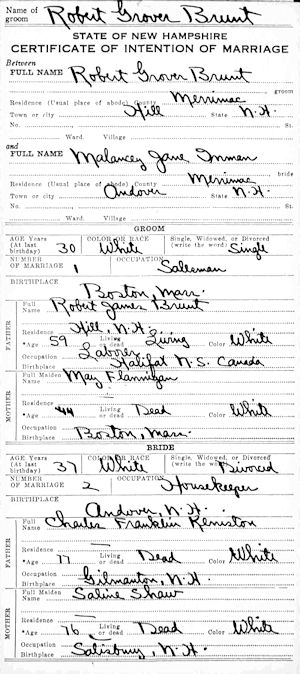 Name of groom Robert Grover Brunt
STATE OF NEW HAMPSHIRE
CERTIFICATE OF INTENTION OF MARRIAGE
Between
FULL NAME Robert Grover Brunt
groom
Residence (Usual place of abode) County Merrimac
Town or city Hill State N.H.
No. St.
Ward. Village
and
FULL NAME Malancy Jane Inman
bride
Residence (Usual place of abode) County Merrimac
Town or city Andover State N.H.
No. St.
Ward. Village
GROOM
AGE Years (At last birthday) 30 COLOR OR RACE White Single, Widowed, or Divorced (write the word) Single
NUMBER OF MARRIAGE 1 OCCUPATION Salesman
BIRTHPLACE Boston, Mass.
FATHER
Full Name Robert James Brunt
Residence Hill, N.H.
*Age 59 Living or dead Living Color White
Occupation Laborer
Birthplace Halifax N.S. Canada
MOTHER
Full Maiden Name May Flannigan
Residence
*Age 44 Living or dead Dead Color White
Occupation
Birthplace Boston, Mass.
BRIDE
AGE Years (At last birthday) 37 COLOR OR RACE White Single, Widowed, or Divorced (write the word) Divorced
NUMBER OF MARRIAGE 2 OCCUPATION Housekeeper
BIRTHPLACE Andover, N.H.
FATHER
Full Name Charles Franklin Keniston
Residence
*Age 77 Living or dead Dead Color White
Occupation
Birthplace Gilmanton, N.H.
MOTHER
Full Maiden Name Saline Shaw
Residence
*Age 76 Living or dead Dead Color White
Occupation
Birthplace Salisbury, N.H.